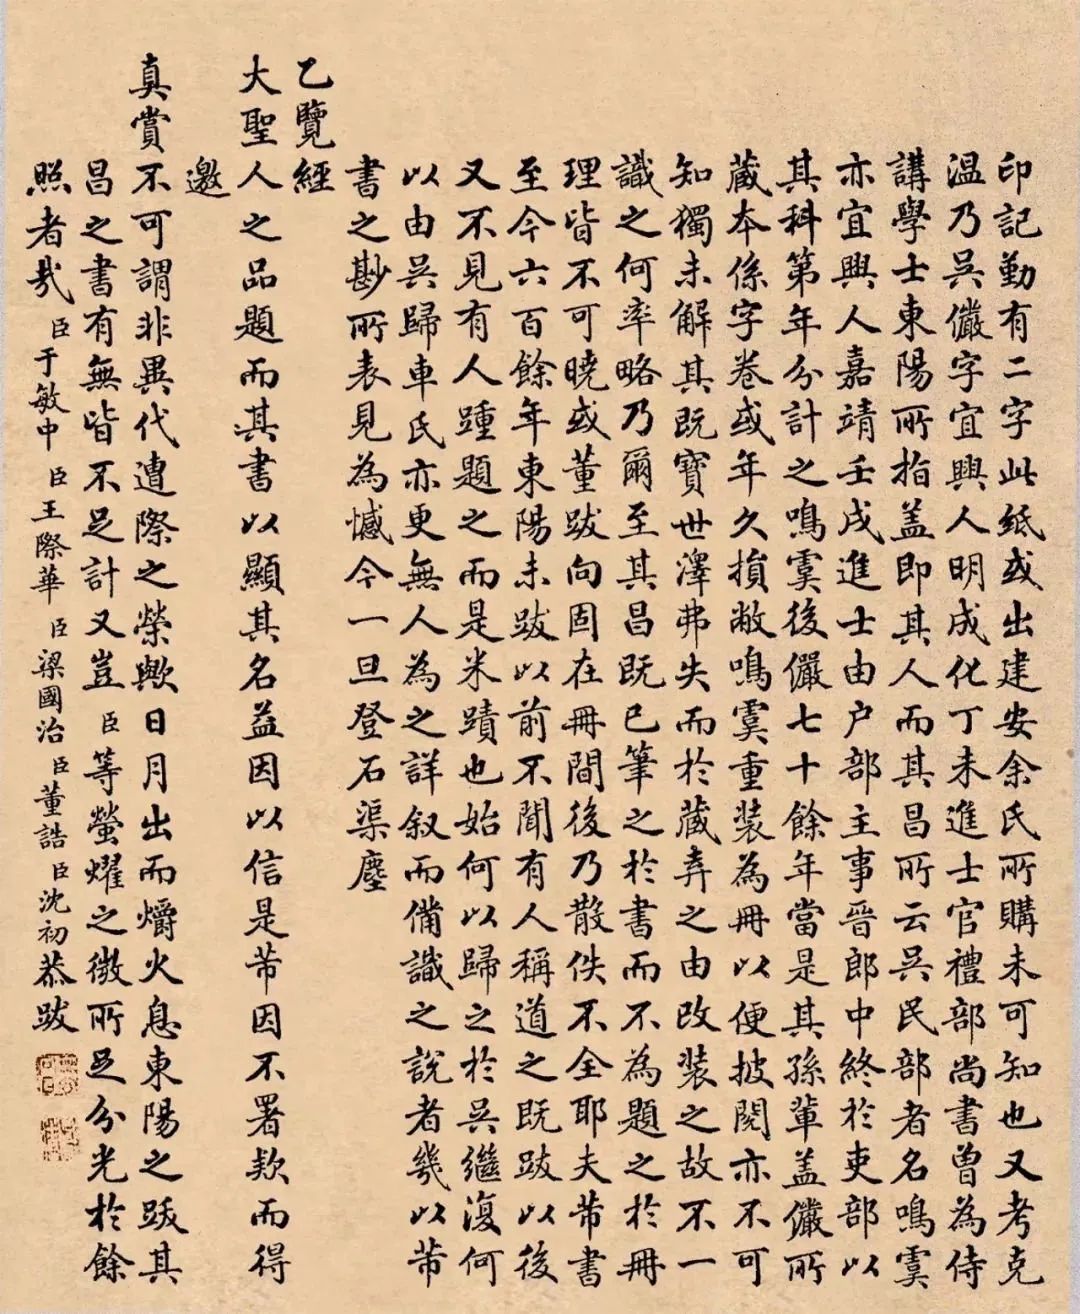 印記勤有二字此紙或出建安余氏所購未可知也又考克
温乃吳儼字宜興人明成化丁未進士官禮部尚書曾為侍
講學士東陽所指盖即其人而其昌所云吳民部者名鳴虞
亦宜興人嘉靖壬戌進士由户部主事晉郎中終於吏部以
其科第年分計之鳴虞後儼七十餘年當是其孫輩盖儼所
藏本係字卷或年久損敝鳴虞重装為冊以便披閱亦不可
知獨未解其既寶世澤弗失而於藏弆之由改装之故不一
識之何率略乃爾至其昌既已筆之於書而不為題之於冊
理皆不可曉或董跋向固在冊間後乃散佚不全耶夫芾書
至今六百餘年東陽未跋以前不聞有人稱道之既跋以後
又不見有人踵題之而是米蹟也始何以歸之於吳繼復何
以由吳歸車氏亦更無人為之詳叙而備識之說者幾以芾
書之尠所表見為憾今一旦登石渠塵
乙覽經
大聖人之品題而其書以顯其名益因以信是芾因不署欵而得
邀
真賞不可謂非異代遭際之榮歟日月出而爝火息東陽之跋其
昌之書有無皆不足計又豈臣等螢燿之微所足分光於餘
照者哉臣于敏中臣王際華臣梁國治臣董誥臣沈初恭跋